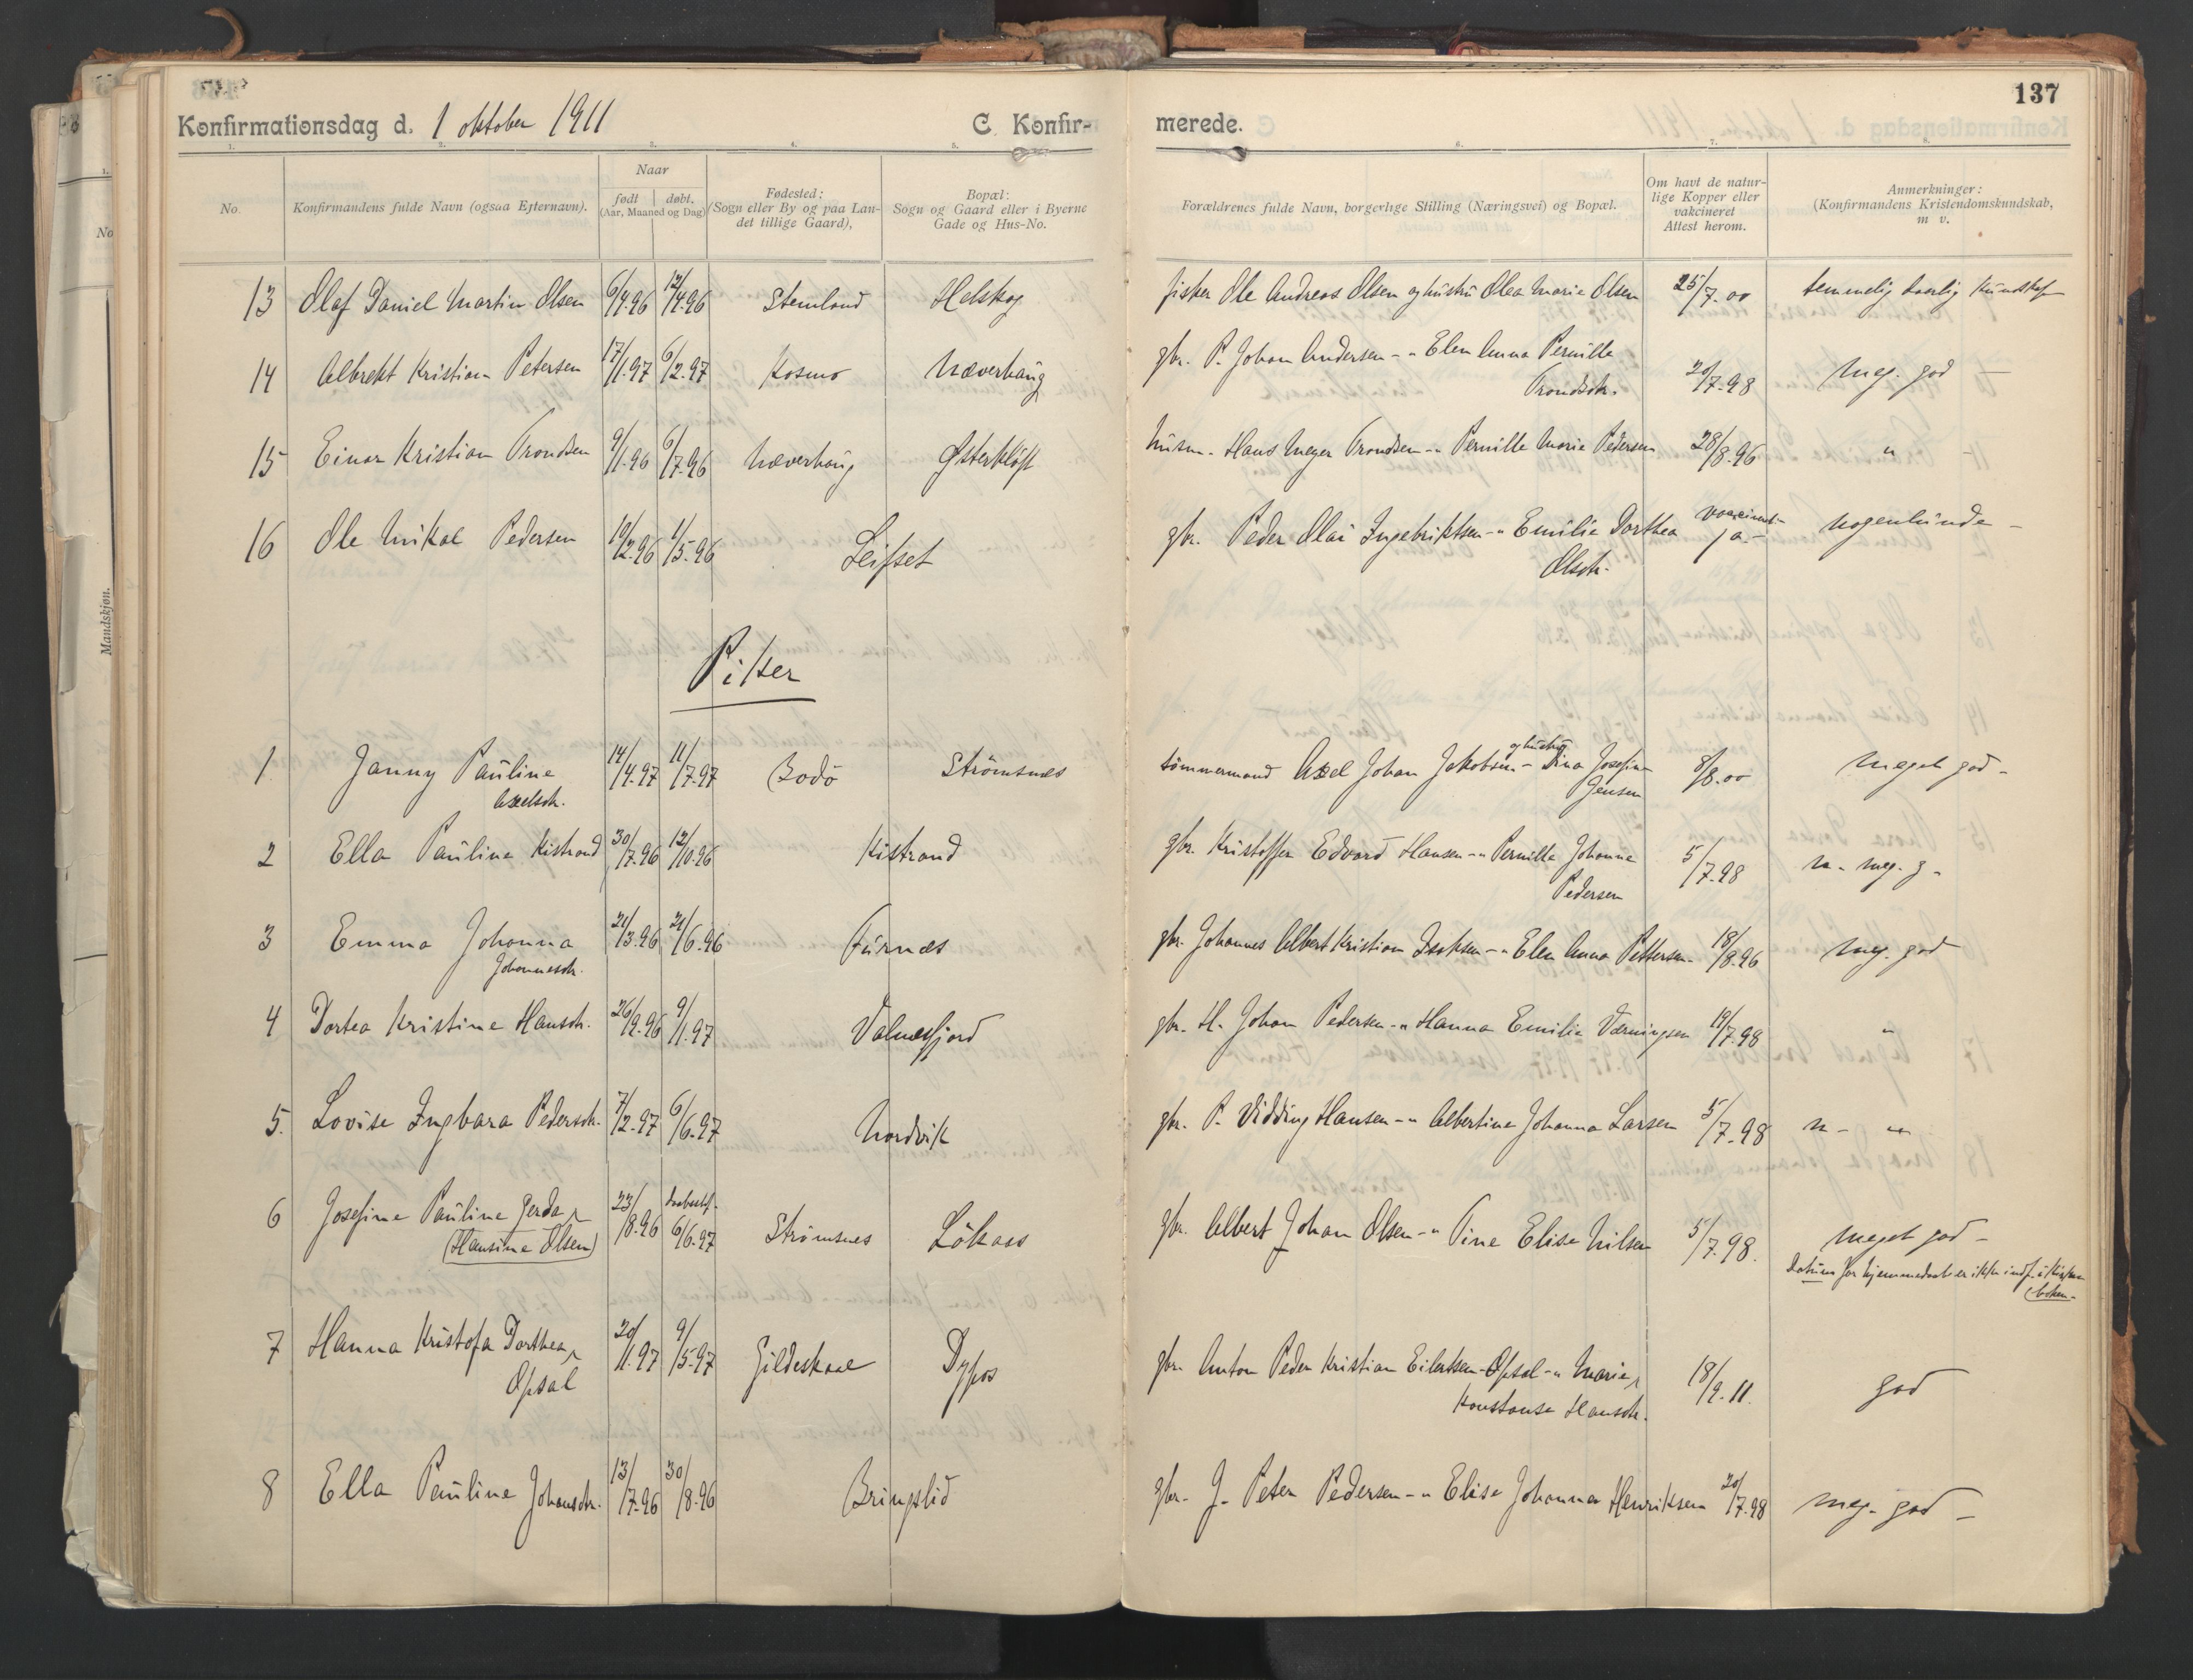 137
Konfirmationsdag d. 1 oktober 1911
C. Konfir-
merede.
1. 2. 3. 4. 5. 6. 7. 8.
No.
Konfirmandens fulde Navn (ogsaa Efternavn).
Naar
født døbt.
(Aar, Maaned og Dag)
Fødested:
(Sogn eller By og paa Lan-
det tillige Gaard),
Bopæl:
Sogn og Gaard eller i Byerne
Gade og Hus-No.
Forældrenes fulde Navn, borgerlige Stilling (Næringsvei) og Bopæl.
Om havt de natur-
lige Kopper eller
vakcineret
Attest herom.
Anmerkninger:
(Konfirmandens Kristendomskundskab,
m v.
No
Mandskjøn.
13 Olaf Daniel Martin Olsen 6/4.96 12/4.96 Stemland Helskog fisker Ole Andreas Olsen og hustru Olea Marie Olsen 25/7.00 temmelig daarlig kundskap
14 Albrekt Kristian Petersen 17/1.97 6/2.97 Kosmo Næverhaug gbr. P. Johan Andersen - " Elen Anna Pernille
Trondsdtr. 20/7.98 meg. god -
15 Einar Kristian Trondsen 9/1.96 6/7.96 Næverhaug Østerkløft husm. Hans Meyer Trondsen - " Pernille Marie Pedersen 28/8.96 " -
16 Ole Mikal Pedersen 19/2.96 1/5.96 Leifset gbr. Peder Olai Ingebriktsen - " Emilie Dorthea
Olsdtr. vaccinert
ja - nogenlunde -
Piker
1 Janny Pauline
Axelsdtr. 14/4.97 11/7.97 Bodö Strömsnes tömmermand Axel Johan Jakobsen - og hustru Dina Josefine
Jensen 8/8.00 meget god -
2 Ella Pauline Kistrand 30/7.96 12/10.96 Kistrand gbr. Kristoffer Edvard Hansen - " Pernille Johanna
Pedersen 5/7.98 n. - meg. g -
3 Emma Johanna
Johannesdtr. 21/3.96 21/6.96 Furnes gbr. Johannes Albert Kristian Isaksen - " Elen Anna Pettersen - 18/8.96 meg. god
4 Dortea Kristine Hansdtr. 26/9.96 9/1.97 Valnesfjord gbr. H. Johan Pedersen - " Hanna Emilie Værningsen 19/7.98 "
5. Lovise Ingbara Pedersdtr. 7/2.97 6/6.97 Nordvik gbr. P. Vidding Hansen - " Albertine Johanna Larsen 5/7.98 n - "
6 Josefine Pauline Gerda
(Hansine Olsen) 23/8.96 daabest.
6/6.97 Strömsnes Lökaas gbr. Albert Johan Olsen - " Tine Elise Nilsen 5/7.98. meget god -
Datum for hjemmedaab er ikke indf. i kirke
boken -
7 Hanna Kristofa Dorthea
Opsal 20/11.97 9/5.97 Gildeskaal Dypos gbr. Anton Peder Kristian Eilertsen - Opsal - " Marie
Konstanse Hansdtr. 18/9.11. god
8 Ella Pauline Johansdtr. 13/7.96 30/8.96 Bringslid gbr. J. Peter Pedersen - " Elise Johanna Henriksen 20/7.98 meg. god -